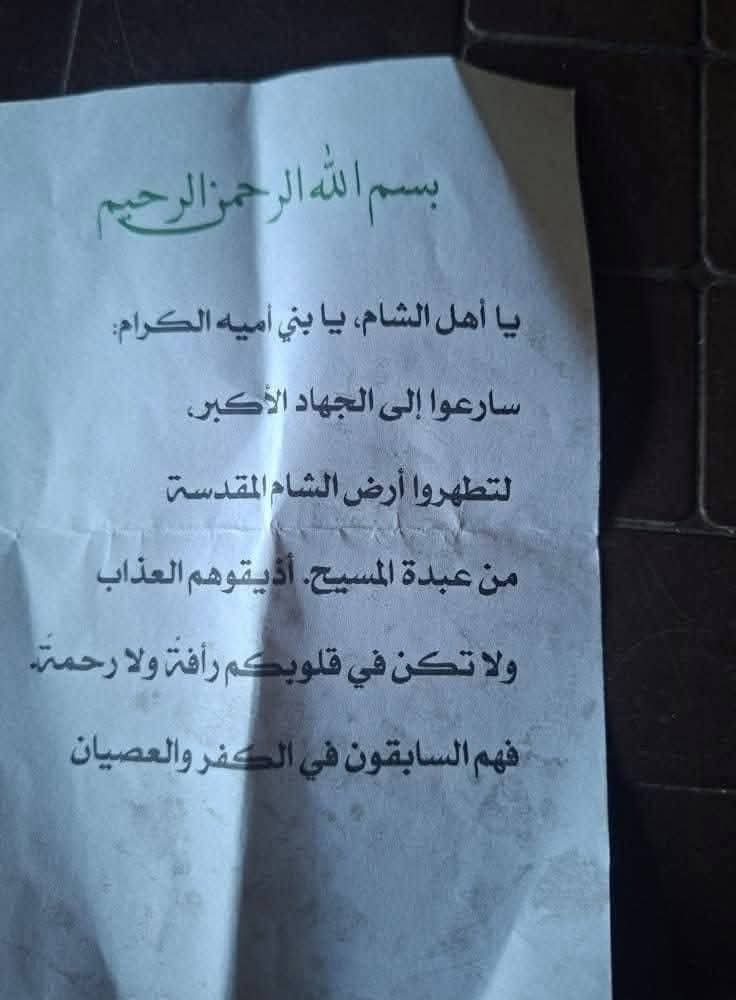 بسم الله الرحمن الرحيم
يا أهل الشام، يا بني أميه الكرام:
سارعوا إلى الجهاد الأكبر،
لتطهروا أرض الشام المقدسة
من عبدة المسيح. أذيقوهم العذاب
ولا تكن في قلوبكم رأفةً ولا رحمةً.
فهم السابقون في الكفر والعصيان